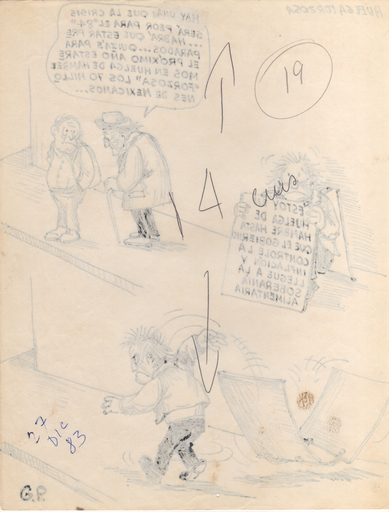 HUELGA FORZOSA
HAY QUE LA CRISIS
SERÁ PEOR PARA EL "84"
... HABRÁ QUE ESTAR PRE
PARADOS... PARA
EL PRÓXIMO AÑO ESTARE
MOS EN HUELGA DE HAMBRE
"FORZOSA" LOS 70 MILLO
NES DE MEXICANOS...
19
4
ESTOY
HUELGA DE
HAMBRE HASTA
QUE EL GOBIERNO
CONTROLE LA
INFLACION Y
LLEGUE A LA
SOBERANIA
ALIMENTARIA
27
DIC
83
G.P.